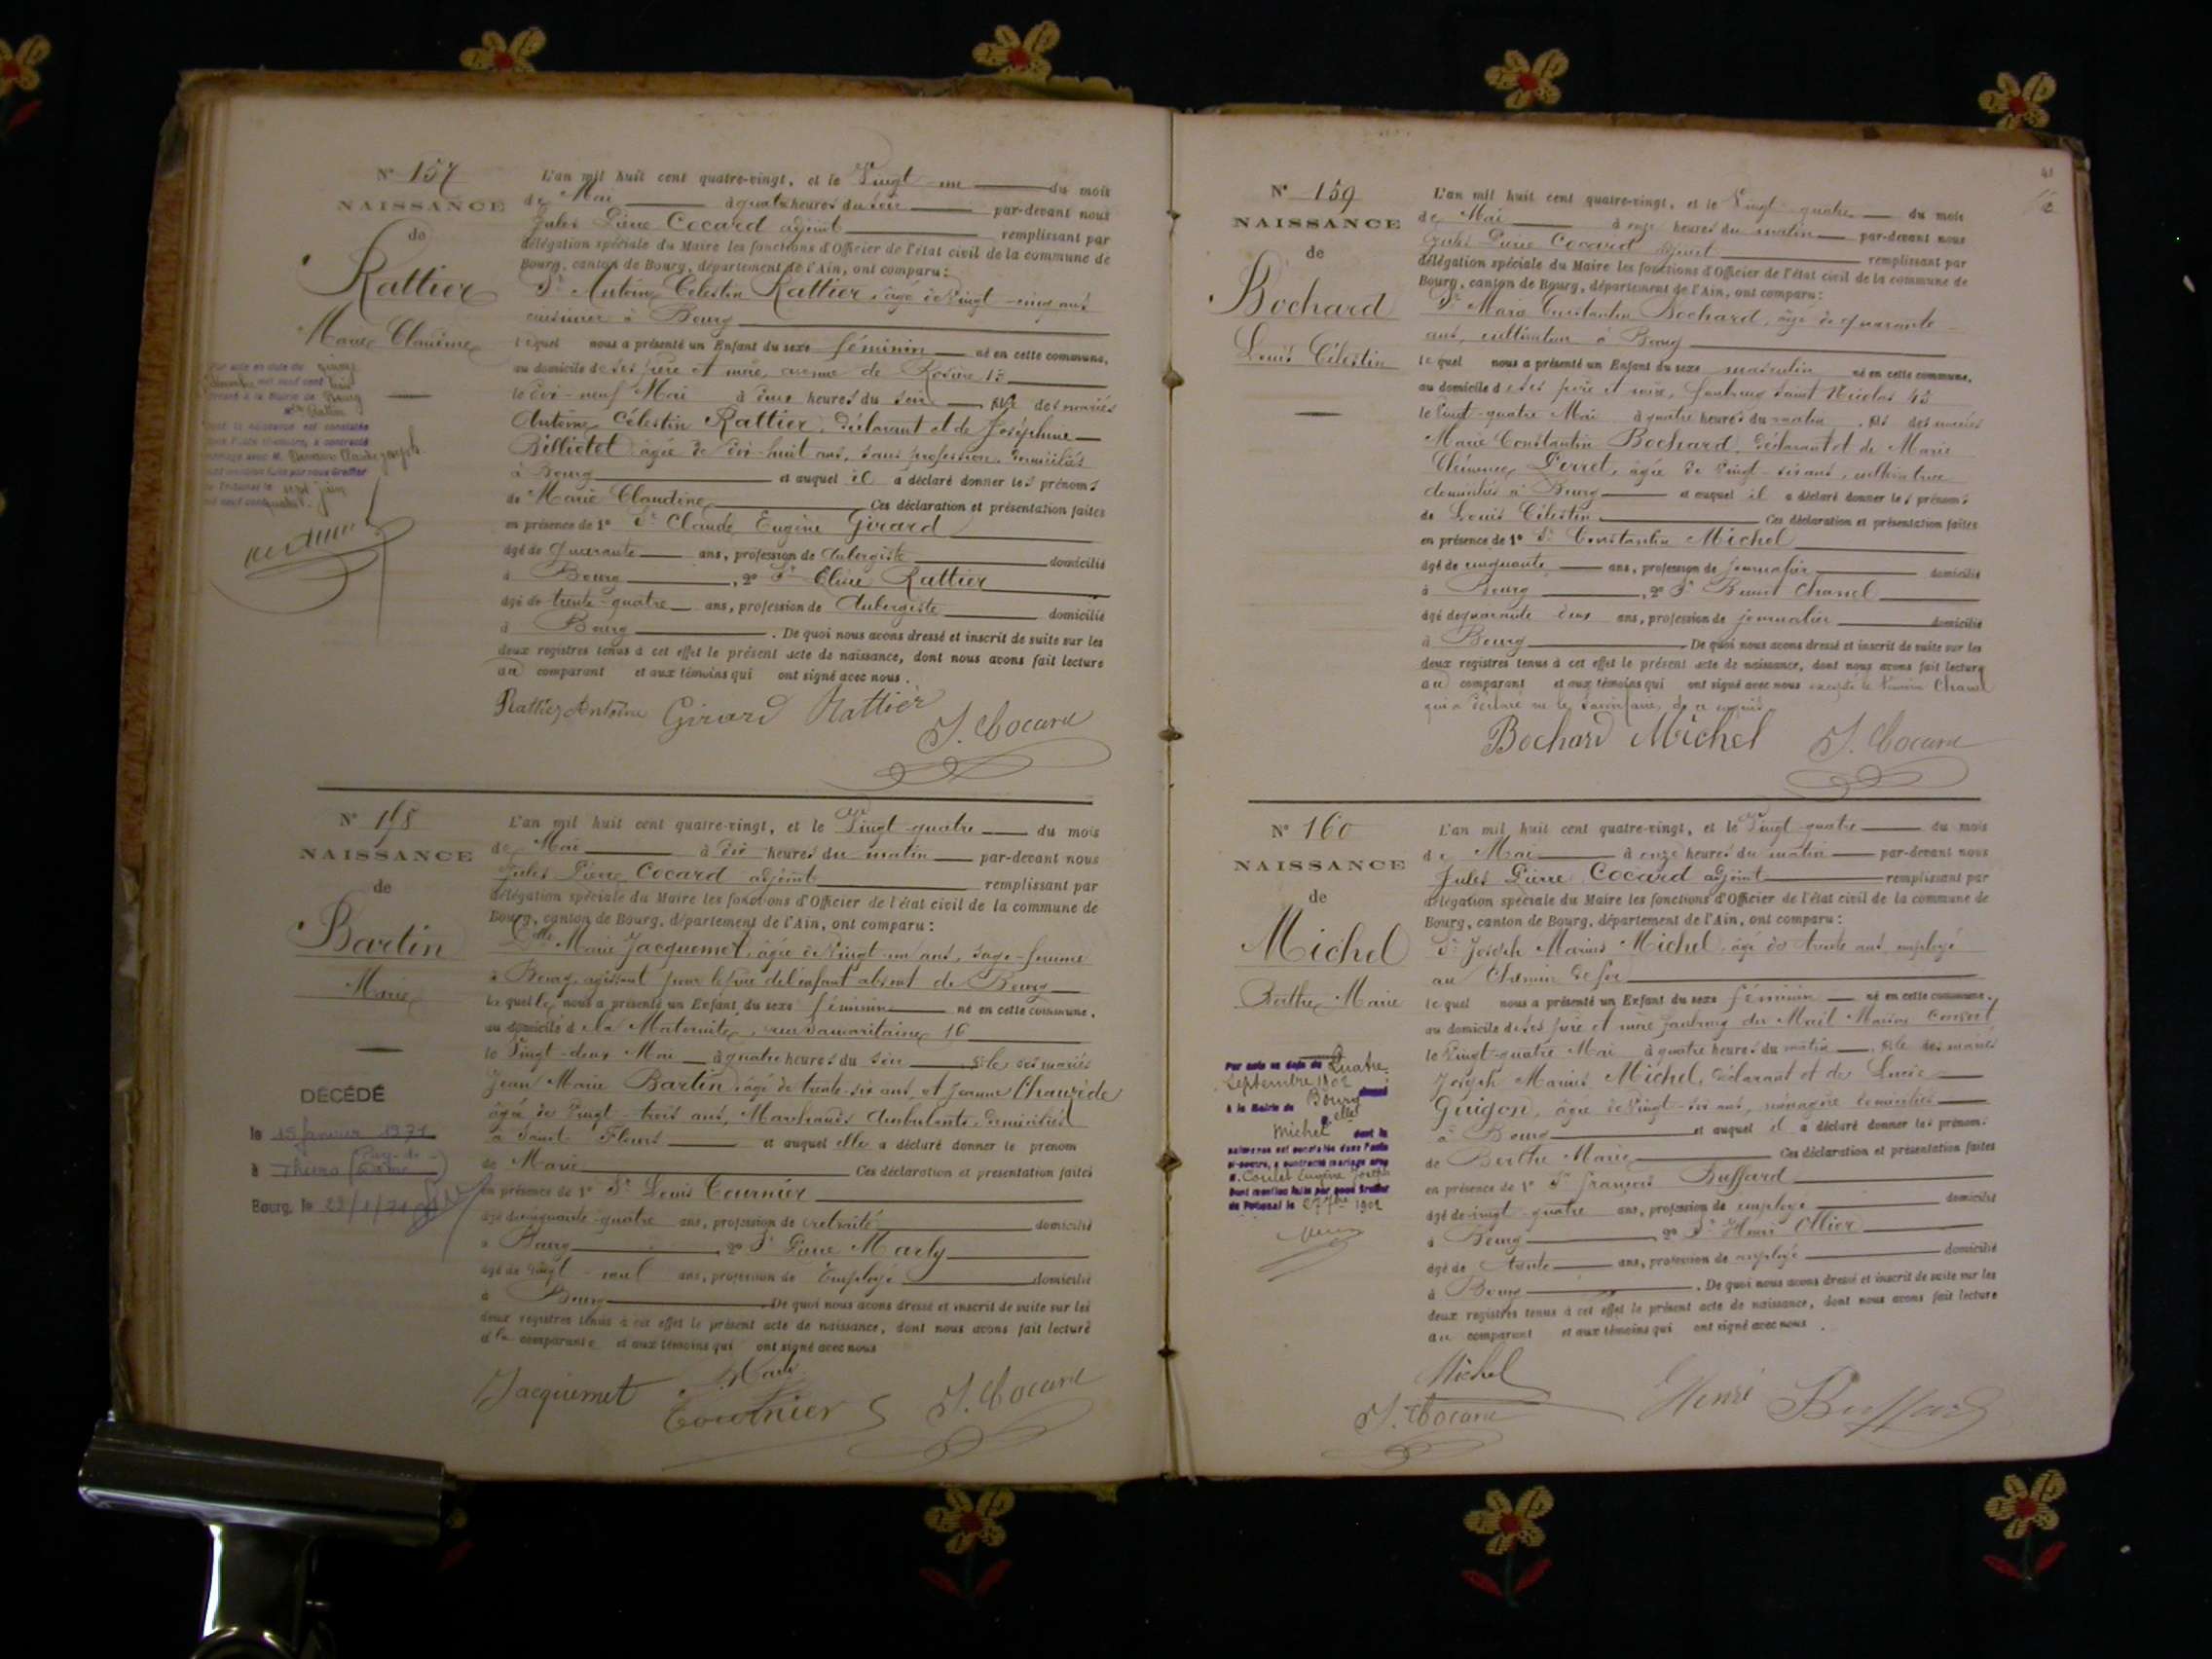 N° 157
NAISSANCE
de
Rattier
Marie Claudine
L'an mil huit cent quatre-vingt, et le Vingt un du mois
de Mai à quatre heures du soir par-devant nous
Jules Pierre Cocard adjoint remplissant par
délégation spéciale du Maire les fonctions d'Officier de l'état civil de la commune de
Bourg, canton de Bourg, département de l'Ain, ont comparu:
Sr Antoine Célestin Rattier, âgé de Vingt-cinq ans
cuisinier à Bourg
lequel nous a présenté un Enfant du sexe féminin né en cette commune,
au domicile de ses père et mère, avenue de Rosière 13
le dix-neuf Mai à deux heures du soir fille des mariés
Antoine Célestin Rattier, déclarant et de Joséphine
Billiotet âgée de dix-huit ans, sans profession, domiciliés
à Bourg et auquel il a déclaré donner les prénoms
de Marie Claudine Ces déclaration et présentation faites
en présence de 1° Sr Claude Eugène Girard
âgé de quarante ans, profession de Aubergiste domicilié
à Bourg, 2° Sr Rattier
âgé de trente-quatre ans, profession de Aubergiste domicilié
à Bourg. De quoi nous avons dressé et inscrit de suite sur les
deux registres tenus à cet effet le présent acte de naissance, dont nous avons fait lecture
au comparant et aux témoins qui ont signé avec nous.
Rattier Antoine Girard Rattier
J. Cocard
N° 158
NAISSANCE
de
Bartin
Marie
DÉCÉDÉ
le 15 Janvier 1971
à Thiers (Puy-de-Dôme)
Bourg, le 23/1/71
L'an mil huit cent quatre-vingt, et le Vingt-quatre du mois
de Mai à dix heures du matin par-devant nous
Jules Pierre Cocard adjoint remplissant par
délégation spéciale du Maire les fonctions d'Officier de l'état civil de la commune de
Bourg, canton de Bourg, département de l'Ain, ont comparu:
Delle Marie Jacquemet, âgée de Vingt-un ans, sage-femme
à Bourg, agissant pour le père de l'enfant absent de Bourg
laquelle nous a présenté un Enfant du sexe féminin né en cette commune,
au domicile de la Maternité, rue Samaritaine 16
le Vingt-deux Mai à quatre heures du soir fille des mariés
Jean Marie Bartin, âgé de trente-six ans, et Jeanne Chaurède
âgée de Vingt-trois ans, Marchands Ambulants, domiciliés
à Saint Flour et auquel elle a déclaré donner le prénom
de Marie Ces déclaration et présentation faites
en présence de 1° Sr Louis Tournier
âgé de cinquante-quatre ans, profession de retraité domicilié
à Bourg, 2° Sr Pierre Marly
âgé de vingt-neuf ans, profession de Employé domicilié
à Bourg. De quoi nous avons dressé et inscrit de suite sur les
deux registres tenus à cet effet le présent acte de naissance, dont nous avons fait lecture
à la comparante et aux témoins qui ont signé avec nous
Jacquemet Marly
Tournier J. Cocard
41
N° 159
NAISSANCE
de
Bochard
Louis Célestin
L'an mil huit cent quatre-vingt, et le Vingt-quatre du mois
de Mai à onze heures du matin par-devant nous
Jules Pierre Cocard adjoint remplissant par
délégation spéciale du Maire les fonctions d'Officier de l'état civil de la commune de
Bourg, canton de Bourg, département de l'Ain, ont comparu:
Sr Marie Constantin Bochard, âgé de quarante
ans, cultivateur à Bourg
lequel nous a présenté un Enfant du sexe masculin né en cette commune,
au domicile de ses père et mère, faubourg Saint Nicolas 43
le Vingt-quatre Mai à quatre heures du matin, fils des mariés
Marie Constantin Bochard, déclarant et de Marie
Perret, âgée de Vingt-six ans, cultivatrice
domiciliés à Bourg et auquel il a déclaré donner les prénoms
de Louis Célestin Ces déclaration et présentation faites
en présence de 1° Sr Constantin Michel
âgé de cinquante ans, profession de journalier domicilié
à Bourg, 2° Sr Benoit Chanel
âgé de quarante deux ans, profession de journalier domicilié
à Bourg. De quoi nous avons dressé et inscrit de suite sur les
deux registres tenus à cet effet le présent acte de naissance, dont nous avons fait lecture
au comparant et aux témoins qui ont signé avec nous excepté le témoin Chanel
qui a déclaré ne le savoir faire, de ce enquis.
Bochard Michel J. Cocard
N° 160
NAISSANCE
de
Michel
Berthe Marie
Par acte en date du Quatre
Septembre 1902
à la Mairie de Bourg
Michel dont la
naissance est constatée dans l'acte
ci-contre, a contracté mariage avec
M. Coulet Eugène Joseph
Dont mention faite par nous Greffier
du Tribunal le 1902
L'an mil huit cent quatre-vingt, et le Vingt-quatre du mois
de Mai à onze heures du matin par-devant nous
Jules Pierre Cocard adjoint remplissant par
délégation spéciale du Maire les fonctions d'Officier de l'état civil de la commune de
Bourg, canton de Bourg, département de l'Ain, ont comparu:
Sr Joseph Marius Michel, âgé de trente ans, employé
au Chemin de fer
lequel nous a présenté un Enfant du sexe féminin né en cette commune,
au domicile de ses père et mère faubourg du Mail Maison Convert
le Vingt-quatre Mai à quatre heures du matin, fille des mariés
Joseph Marius Michel, déclarant et de Lucie
Guigon, âgée de Vingt-six ans, ménagère domiciliés
à Bourg et auquel il a déclaré donner les prénoms
de Berthe Marie Ces déclaration et présentation faites
en présence de 1° Sr François Buffard
âgé de vingt-quatre ans, profession de employé domicilié
à Bourg, 2° Sr Henri Ollier
âgé de trente ans, profession de employé domicilié
à Bourg. De quoi nous avons dressé et inscrit de suite sur les
deux registres tenus à cet effet le présent acte de naissance, dont nous avons fait lecture
au comparant et aux témoins qui ont signé avec nous.
Michel
J. Cocard Henri Buffard